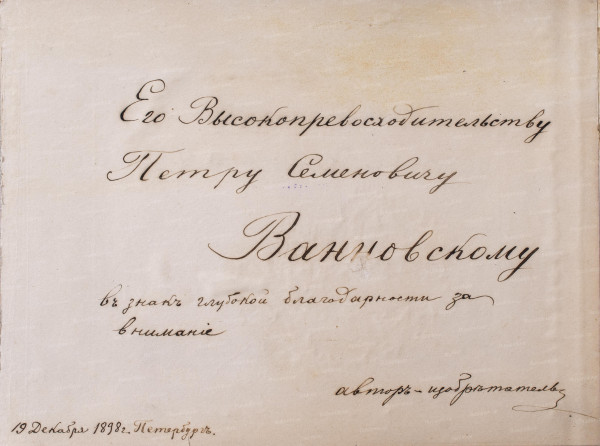 Его Высокопревосходительству
Петру Семеновичу
Ванновскому
въ знакъ глубокой благодарности за
вниманіе
авторъ-изобрѣтатель
19 Декабря 1898г. Петербургъ.